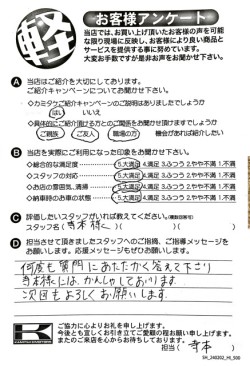 軽
お客様アンケート
当店では、お買い上げ頂いたお客様の声を可能
な限り現場に反映し、お客様により良い商品と
サービスを提供する事に努めています。
大変お手数ですが是非お声をお聞かせ下さい。
A 当店はご紹介を大切にしております。
ご紹介キャンペーンについてお聞かせ下さい。
◇カミタケご紹介キャンペーンのご説明はありましたでしょうか
はい いいえ
◇具体的にご紹介頂ける方とのご関係をお聞かせ頂けますでしょうか
ご親族 ご友人 職場の方 機会があれば紹介したい
B 当店を実際ご利用になった印象をお聞かせ下さい。
◇総合的な満足度 5.大満足 4.満足 3.ふつう 2.やや不満 1.不満
◇スタッフの対応 5.大満足 4.満足 3.ふつう 2.やや不満 1.不満
◇お店の雰囲気、清掃 5.大満足 4.満足 3.ふつう 2.やや不満 1.不満
◇納車時のお車の状態 5.大満足 4.満足 3.ふつう 2.やや不満 1.不満
C 評価したいスタッフがいれば教えてください。(複数回答可)
スタッフ名( 寺本 様 )( )( )
D 担当させて頂きましたスタッフへのご指摘、ご指導メッセージを
お願いします。応援メッセージもぜひお願いします。
何度も質問にあたたかく答えて下さり
寺本様には、かんしゃしております。
次回もよろしくお願いします。
ご協力に心よりお礼を申し上げます。
今後とも宜しくお引き立てご愛顧の程お願い申し上げます。
またのご来店を心からお待ちしております。
担当( 寺本 )